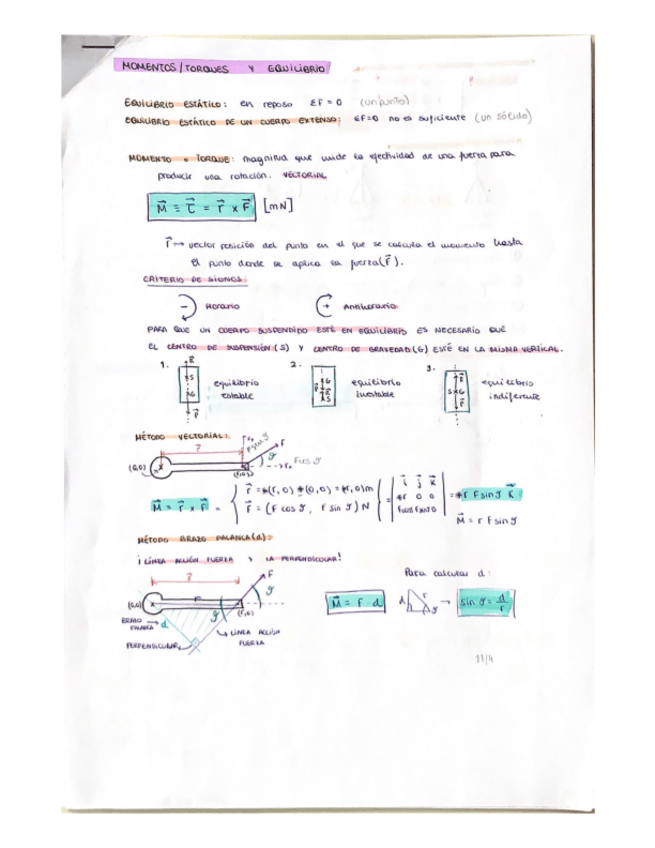 MOMENTOS/TORQUES Y EQUILIBRIO
EQUILIBRIO ESTÁTICO: en reposo ΣF = 0 (un punto)
EQUILIBRIO ESTÁTICO DE UN CUERPO EXTENSO: ΣF=0 no es suficiente (un sólido)
MOMENTO o TORQUE: magnitud que mide la efectividad de una fuerza para
producir una rotación. VECTORIAL
M⃗ ≡ τ⃗ = r⃗ x F⃗ [mN]
r⃗ → vector posición del punto en el que se calcula el momento hasta
el punto donde se aplica la fuerza (F⃗).
CRITERIO DE SIGNOS:
- Horario + Antihorario
PARA QUE UN CUERPO SUSPENDIDO ESTÉ EN EQUILIBRIO ES NECESARIO QUE
EL CENTRO DE SUSPENSIÓN (S) Y CENTRO DE GRAVEDAD (G) ESTÉ EN LA MISMA VERTICAL.
1. 2. 3.
equilibrio estable
equilibrio inestable
equilibrio indiferente
MÉTODO VECTORIAL:
r⃗ F
(0,0) (r,0)
M⃗ = r⃗ x F⃗ =
r⃗ = (r, 0) (0,0) = (r, 0)m
F⃗ = (F cos θ, F sin θ) N
i⃗ j⃗ k⃗
r 0 0
= r F sin θ k⃗
M⃗ = r F sin θ
MÉTODO BRAZO PALANCA (d):
¡LÍNEA ACCIÓN FUERZA Y LA PERPENDICULAR!
Para calcular d:
r⃗ F
(0,0) (r,0)
M⃗ = F · d
d r θ → sin θ = d/r
BRAZO PALANCA → d
LÍNEA ACCIÓN FUERZA
PERPENDICULAR